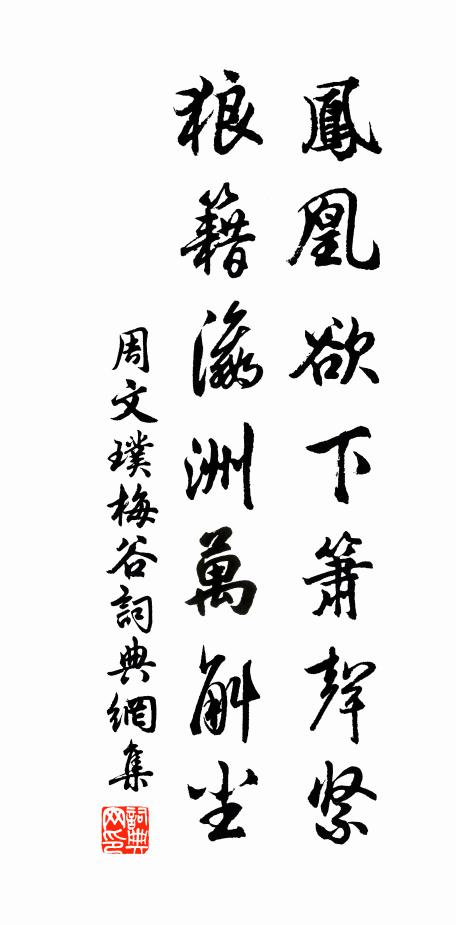 鳳凰欲下簫聲緊
狼籍瀛洲萬斛塵
周文璞梅谷詞典網集
詞典網印